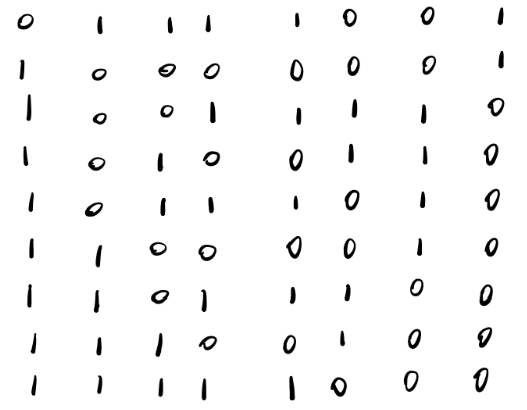 0 1 1 1 1 0 0 1
1 0 0 0 0 0 0 1
1 0 0 1 1 1 1 0
1 0 1 0 0 1 1 0
1 0 1 1 1 0 1 0
1 1 0 0 0 0 1 0
1 1 0 1 1 1 0 0
1 1 1 0 0 1 0 0
1 1 1 1 1 0 0 0